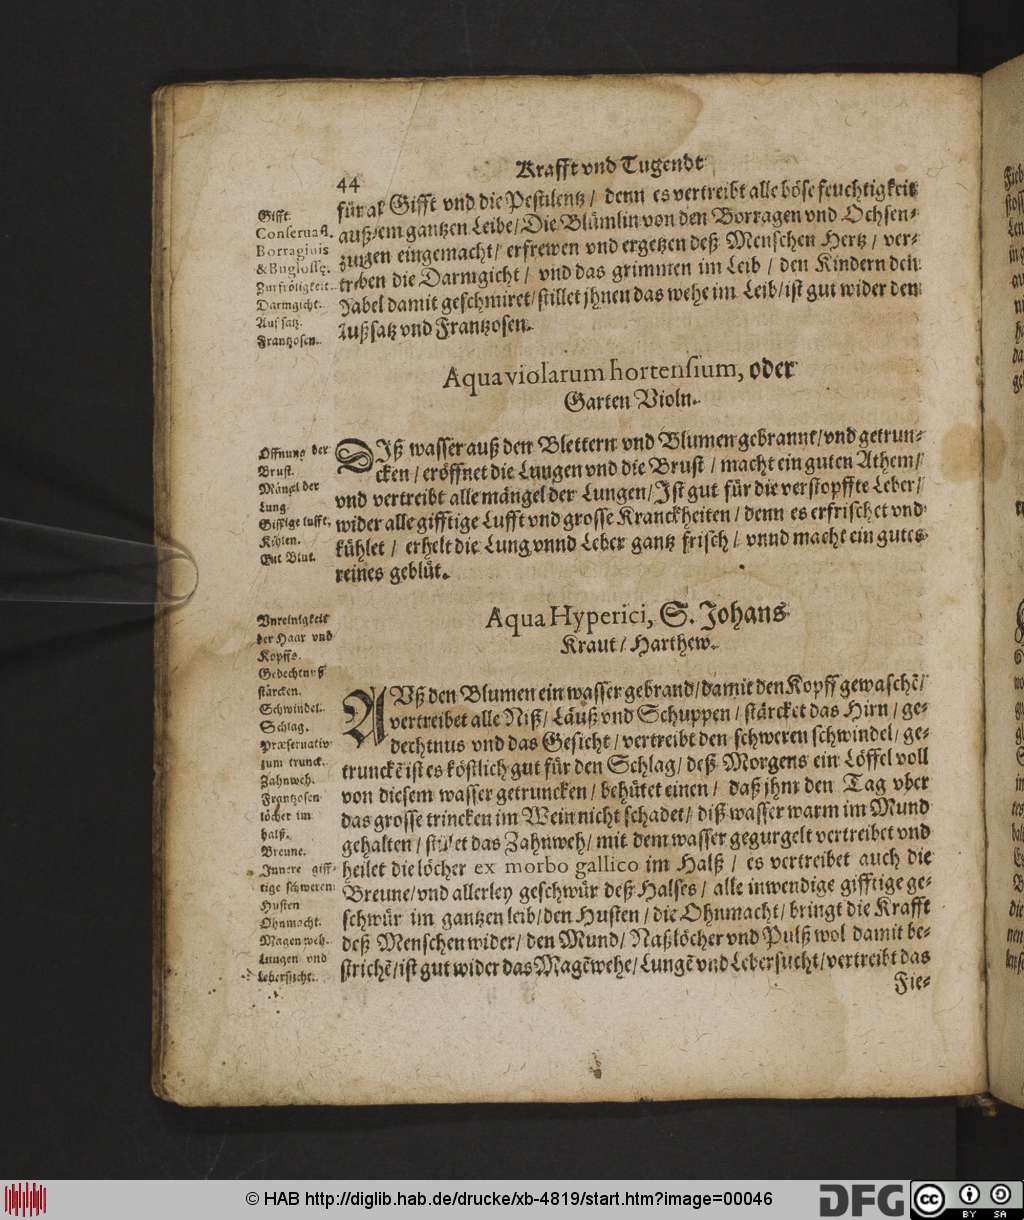 44
Krafft vnd Tugendt
für al Gifft vnd die Pestilentz / denn es vertreibt alle böse feuchtigkeit
auß em gantzen Leibe / Die Blümlin von den Borragen vnd Ochsen-
zungen eingemacht / erfrewen vnd ergetzen deß Menschen Hertz / ver-
treiben die Darmgicht / vnd das grimmen im Leib / den Kindern den
Nabel damit geschmiret / stillet jhnen das wehe im Leib / ist gut wider den
Außsatz vnd Frantzosen.
Gifft.
Conseruaſt.
Borraginis
& Bugloſſę.
Zur fröligkeit.
Darmgicht.
Aussatz.
Frantzosen.
Aqua violarum hortenſium, oder
Garten Violn.
DIß wasser auß den Blettern vnd Blumen gebrannt / vnd getrun-
cken / eröffnet die Lungen vnd die Brust / macht ein guten Athem /
vnd vertreibt alle mängel der Lungen / Ist gut für die verstopffte Leber /
wider alle gifftige Lufft vnd grosse Kranckheiten / denn es erfrischet vnd
kühlet / erhelt die Lung vnnd Leber gantz frisch / vnnd macht ein gutes
reines geblüt.
Öffnung der
Brust.
Mängel der
Lung.
Gifftige lufft.
Kühlen.
Gut Blut.
Aqua Hyperici, S. Johans
Kraut / Harthew.
AVß den Blumen ein wasser gebrand / damit den Kopff gewaschē /
vertreibet alle Niß / Läuß vnd Schuppen / stärcket das Hirn / ge-
dechtnus vnd das Gesicht / vertreibt den schweren schwindel / ge-
trunckē ist es köstlich gut für den Schlag / deß Morgens ein Löffel voll
von diesem wasser getruncken / behütet einen / daß jhm den Tag vber
das grosse trincken im Wein nicht schadet / diß wasser warm im Mund
gehalten / stillet das Zahnweh / mit dem wasser gegurgelt vertreibet vnd
heilet die löcher ex morbo gallico im Halß / es vertreibet auch die
Breune / vnd allerley geschwür deß Halses / alle inwendige gifftige ge-
schwür im gantzen leib / den Husten / die Ohnmacht / bringt die Krafft
deß Menschen wider / den Mund / Naßlöcher vnd Pulß wol damit be-
strichē / ist gut wider das Magēwehe / Lungē vnd Lebersucht / vertreibt das
Fie-
Vnreinigkeit
der Haar vnd
Kopffs.
Gedechtnuß
stärcken.
Schwindel.
Schlag.
Præseruativ
zum trunck.
Zahnweh.
Frantzosen
löcher im
halß.
Breune.
Innere giff-
tige schweren
Husten
Ohnmacht.
Magenweh.
Lungen vnd
lebersucht.
© HAB http://diglib.hab.de/drucke/xb-4819/start.htm?image=00046
DFG
cc BY SA